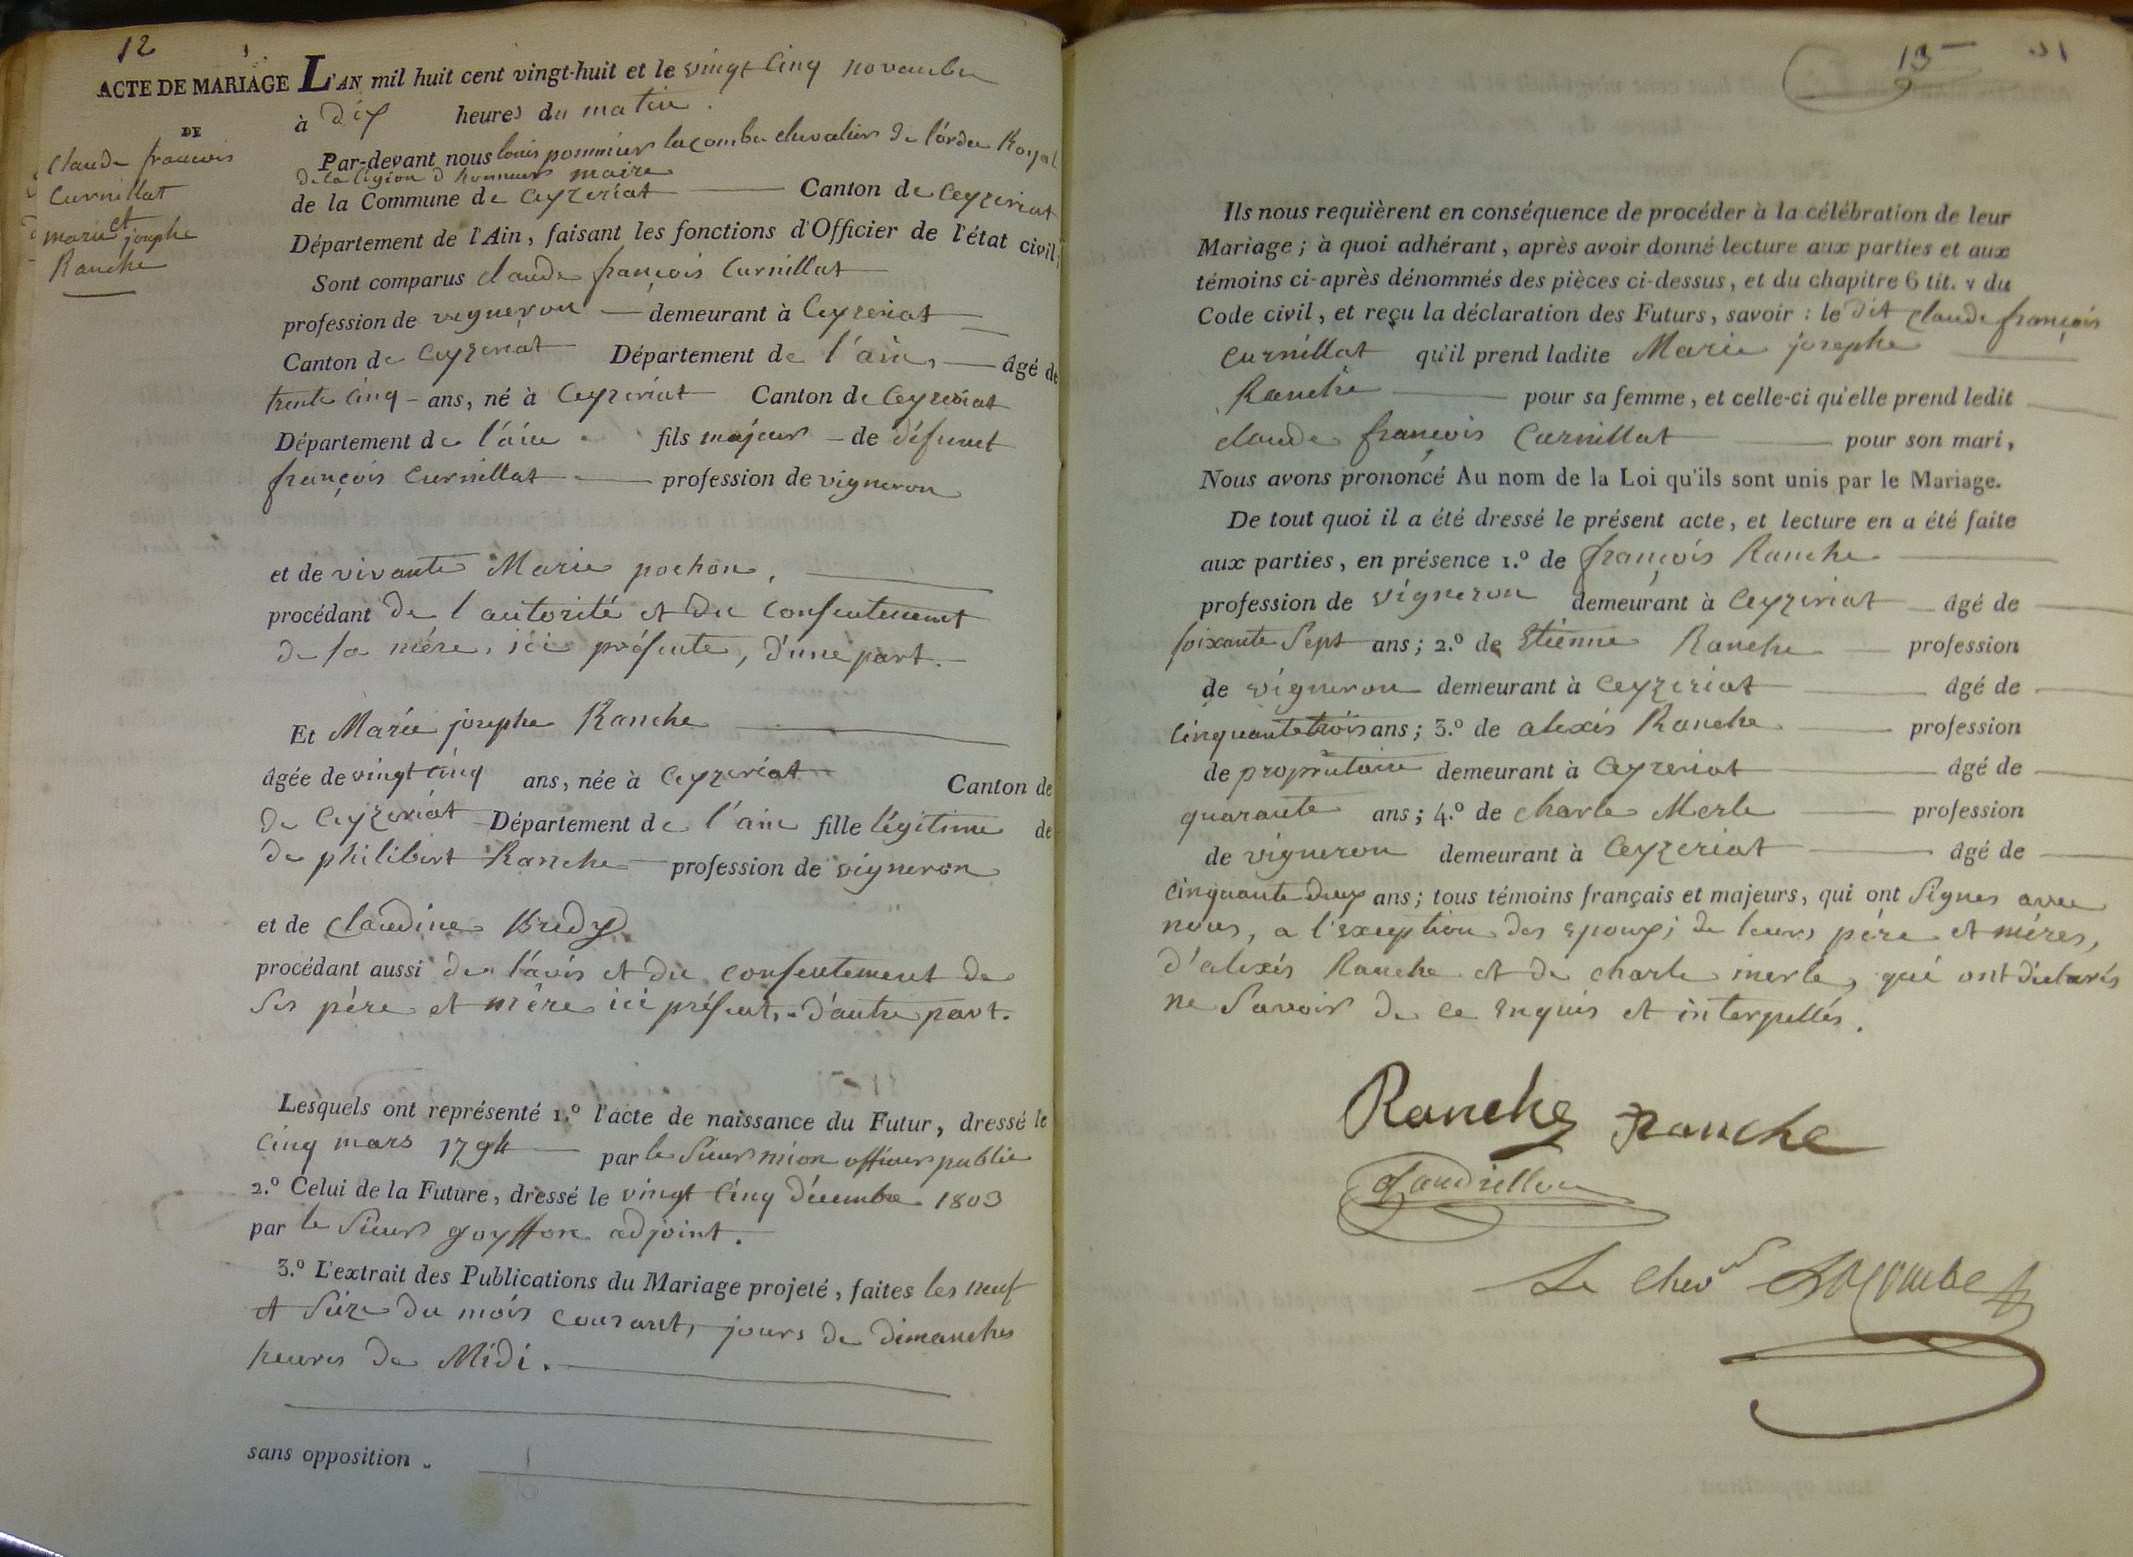 12
ACTE DE MARIAGE L'AN mil huit cent vingt-huit et le vingt cinq novembre
à dix heures du matin.
DE
claude francois
Curnillat
et
marie josephe
Ranche
Par-devant nous louis pommier lacombe chevalier de l'ordre Royal
de la légion d honneur maire
de la Commune de Ceyzeriat Canton de Ceyzeriat
Département de l'Ain, faisant les fonctions d'Officier de l'état civil,
Sont comparus claude françois Curnillat
profession de vigneron demeurant à Ceyzeriat
Canton de Ceyzeriat Département de l'ain, âgé de
trente cinq ans, né à Ceyzeriat Canton de Ceyzeriat
Département de l'ain fils majeur de défunt
françois Curnillat profession de vigneron
et de vivante Marie pochon,
procédant de l'autorité et du consentement
de sa mére, ici présente, d'une part.
Et Marie josephe Ranche
âgée de vingt cinq ans, née à Ceyzeriat Canton de
de Ceyzeriat Département de l'ain fille légitime de
de philibert Ranche profession de vigneron
et de Claudine Bredy
procédant aussi de l'avis et du consentement de
ses père et mère ici présent, d'autre part.
Lesquels ont représenté 1.º l'acte de naissance du Futur, dressé le
cinq mars 1794 par le Sieur mion officier public
2.º Celui de la Future, dressé le vingt cinq décembre 1803
par le Sieur goyffon adjoint.
3.º L'extrait des Publications du Mariage projeté, faites les neuf
et seize du mois courant, jours de dimanches
heures de Midi.
sans opposition.
13
Ils nous requièrent en conséquence de procéder à la célébration de leur
Mariage; à quoi adhérant, après avoir donné lecture aux parties et aux
témoins ci-après dénommés des pièces ci-dessus, et du chapitre 6 tit. v du
Code civil, et reçu la déclaration des Futurs, savoir: le dit claude françois
Curnillat qu'il prend ladite Marie josephe
Ranche pour sa femme, et celle-ci qu'elle prend ledit
claude françois Curnillat pour son mari,
Nous avons prononcé Au nom de la Loi qu'ils sont unis par le Mariage.
De tout quoi il a été dressé le présent acte, et lecture en a été faite
aux parties, en présence 1.º de françois Ranche
profession de vigneron demeurant à Ceyzeriat âgé de
soixante Sept ans; 2.º de Etienne Ranche profession
de vigneron demeurant à Ceyzeriat âgé de
cinquante trois ans; 3.º de alexis Ranche profession
de proprietaire demeurant à Ceyzeriat âgé de
quarante ans; 4.º de charle Merle profession
de vigneron demeurant à Ceyzeriat âgé de
cinquante deux ans; tous témoins français et majeurs, qui ont Signés avec
nous, a l'exception des epoux, de leurs père et méres,
d'alexis Ranche et de charle merle, qui ont déclarés
ne Savoir de ce enquis et interpellés.
Ranche Ranche
Le chev<sup>er</sup> Lacombe